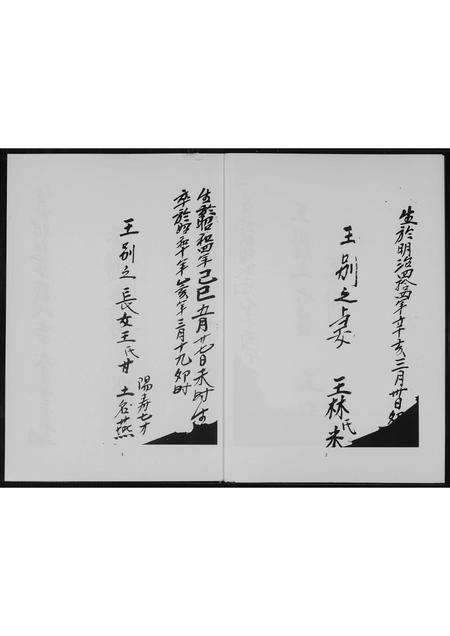 生於明治四拾四年辛亥三月卅日卯
王別之妻 王林氏米
2
生於昭和四年己巳五月廿七日未時生
卒於昭和十年乙亥年三月十九卯時
陽寿七才
王別之長女王氏甘 土名燕
1